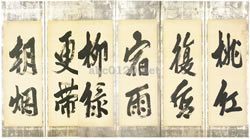 桃紅
復含
宿雨
柳緑
更帯
朝烟